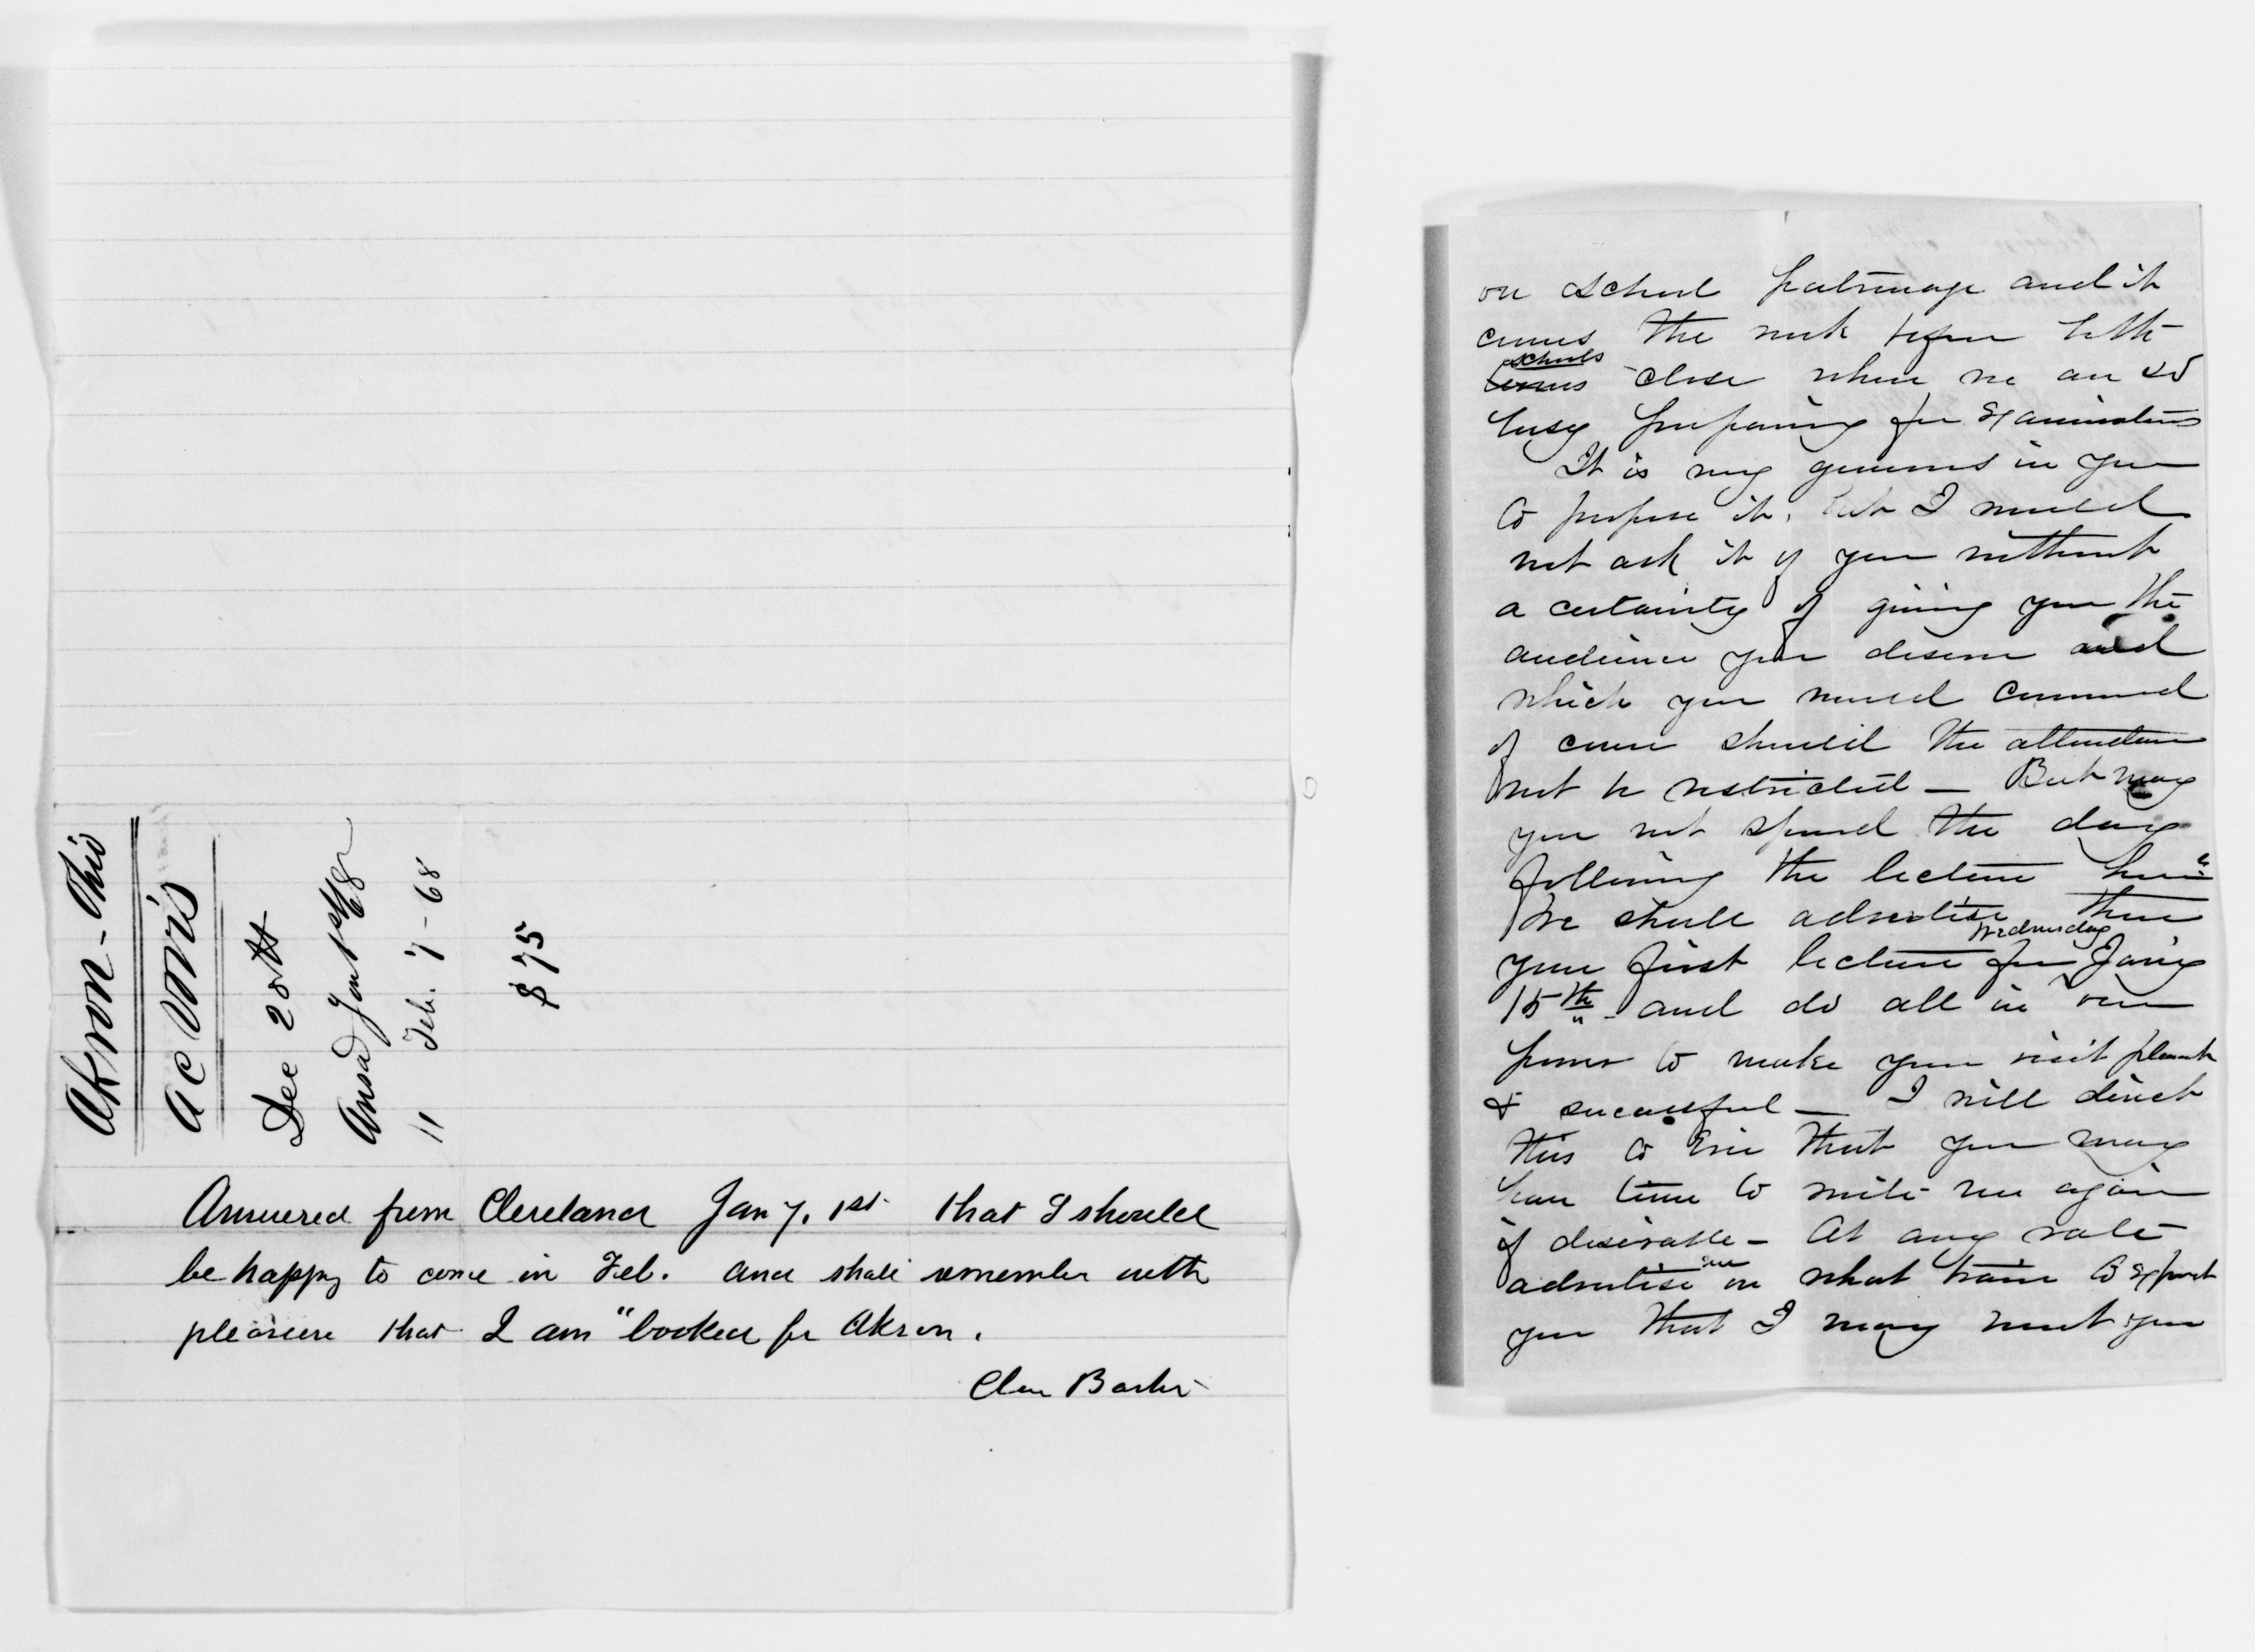 Akron - Ohio
A C Voris
Dec 28th
Ansd Jany 1st 68
11 Feb. 7 - 68
$75
Answered from Cleveland Jany. 1st that I should
be happy to come in Feb. and shall remember with
pleasure that I am "booked for Akron.
Clara Barton
on school patronage and it
comes the week before both
terms schools close when we are so
busy preparing for Examinations
It is very generous in you
to propose it, but I would
not ask it of you without
a certainty of giving you the
audience you deserve and
which you would command
of course should the attendance
not be restricted — But may
you not spend the day
following the lecture here
We shall advertise then
your first lecture for Wednesday Jany
15th and do all in our
power to make your visit pleasant
& successful — I will direct
this to Erie that you may
have time to write me again
if desirable — At any rate
advertise me on what train to expect
you that I may meet you